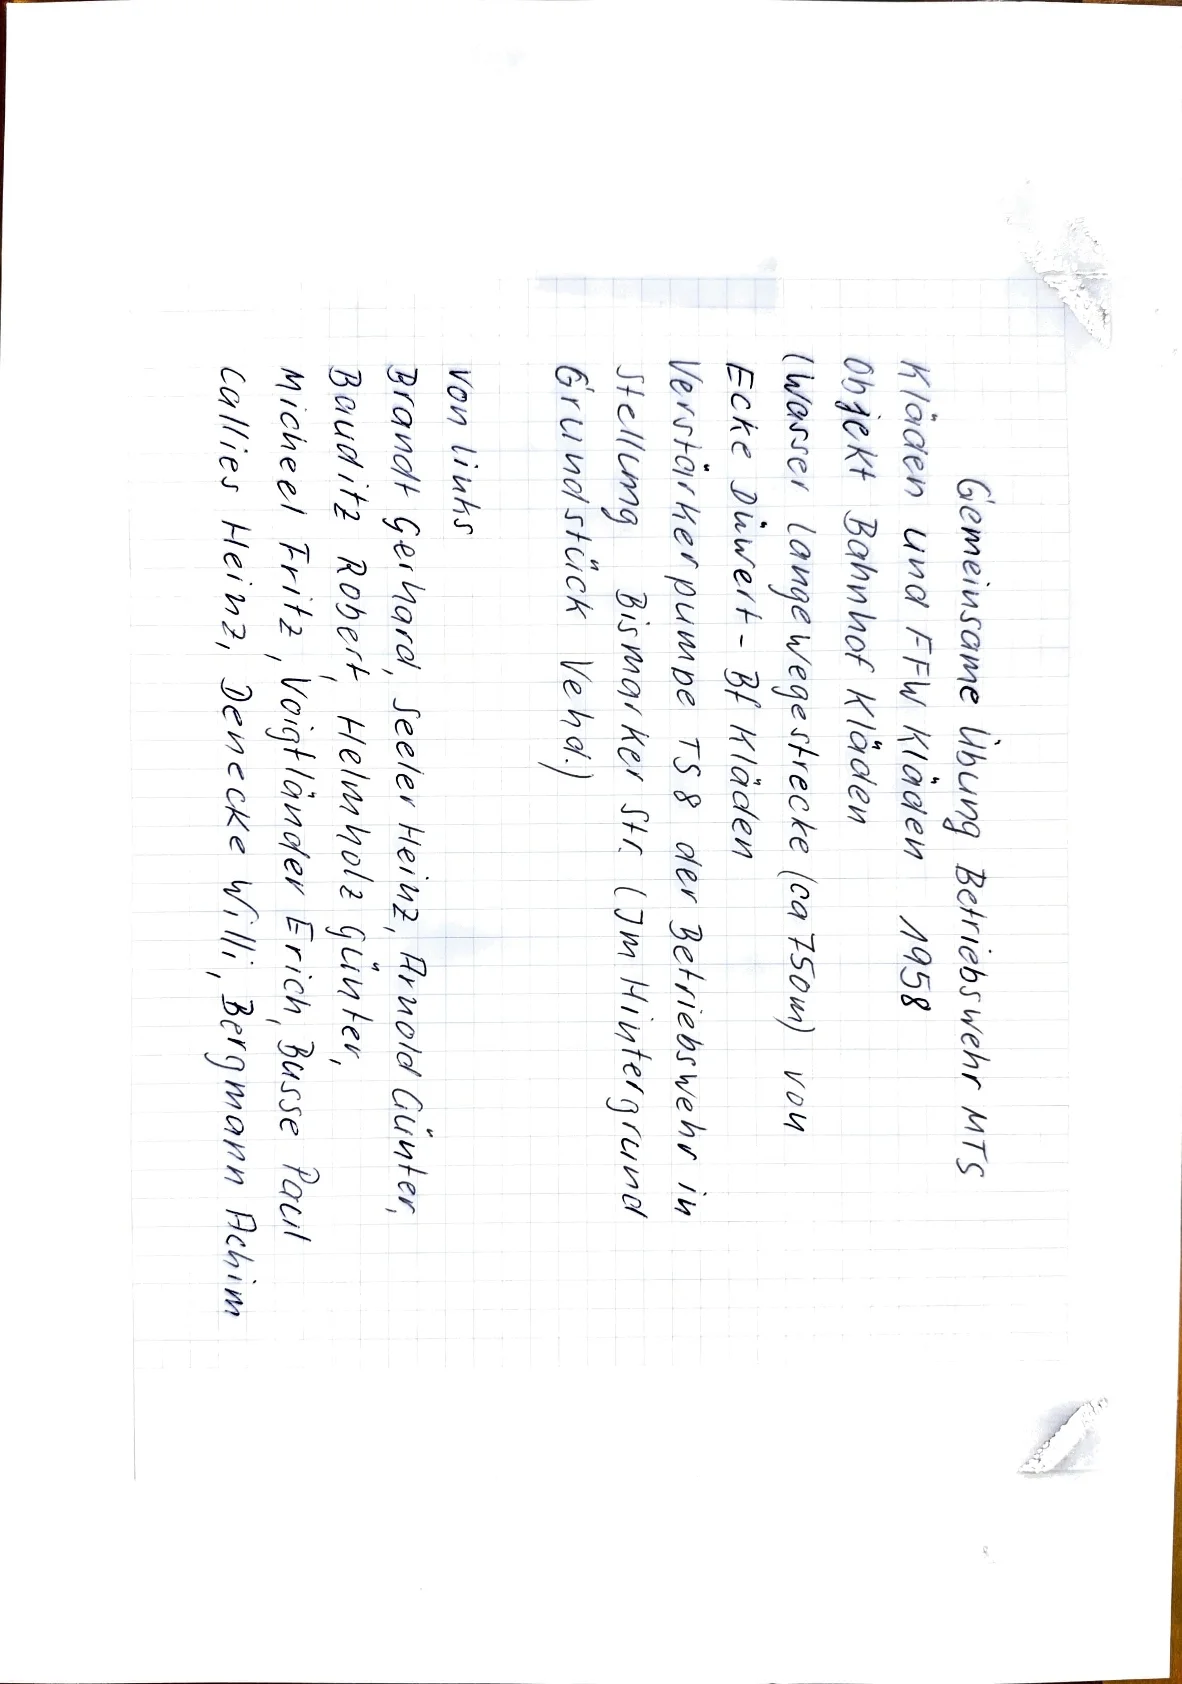 Gemeinsame Übung Betriebswehr MTS
Kläden und FFW Kläden 1958
Objekt Bahnhof Kläden
(Wasser lange Wegestrecke (ca 750m) von
Ecke Düwert - Bf Kläden
Verstärkerpumpe TS8 der Betriebswehr in
Stellung Bismarker Str. (Im Hintergrund
Grundstück Vehd.)
von links
Brandt Gerhard, Seeler Heinz, Arnold Günter,
Bauditz Robert, Helmholz Günter,
Micheel Fritz, Voigtländer Erich, Busse Paul
Callies Heinz, Denecke Willi, Bergmann Achim